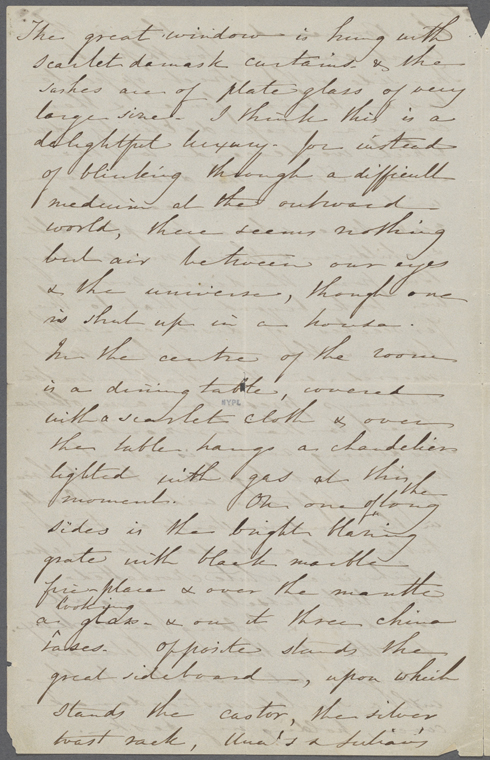 The great window is hung with
scarlet damask curtains & the
sashes are of plate glass of very
large size. I think this is a
delightful luxury - for instead
of blinking through a difficult
medium at the outward
world, there seems nothing
but air between our eyes
& the universe, though one
is shut up in a house.
In the centre of the room
is a dining table, covered
NYPL
with a scarlet cloth & over
the table hangs a chandelier
lighted with gas at this
moment. On one of the long
sides is the bright blazing
grate with black marble
fire-place & over the mantle
a looking glass - & on it three china
vases. Opposite stands the
great sideboard, upon which
stands the castor, the silver
toast rack, Una's & Julian's